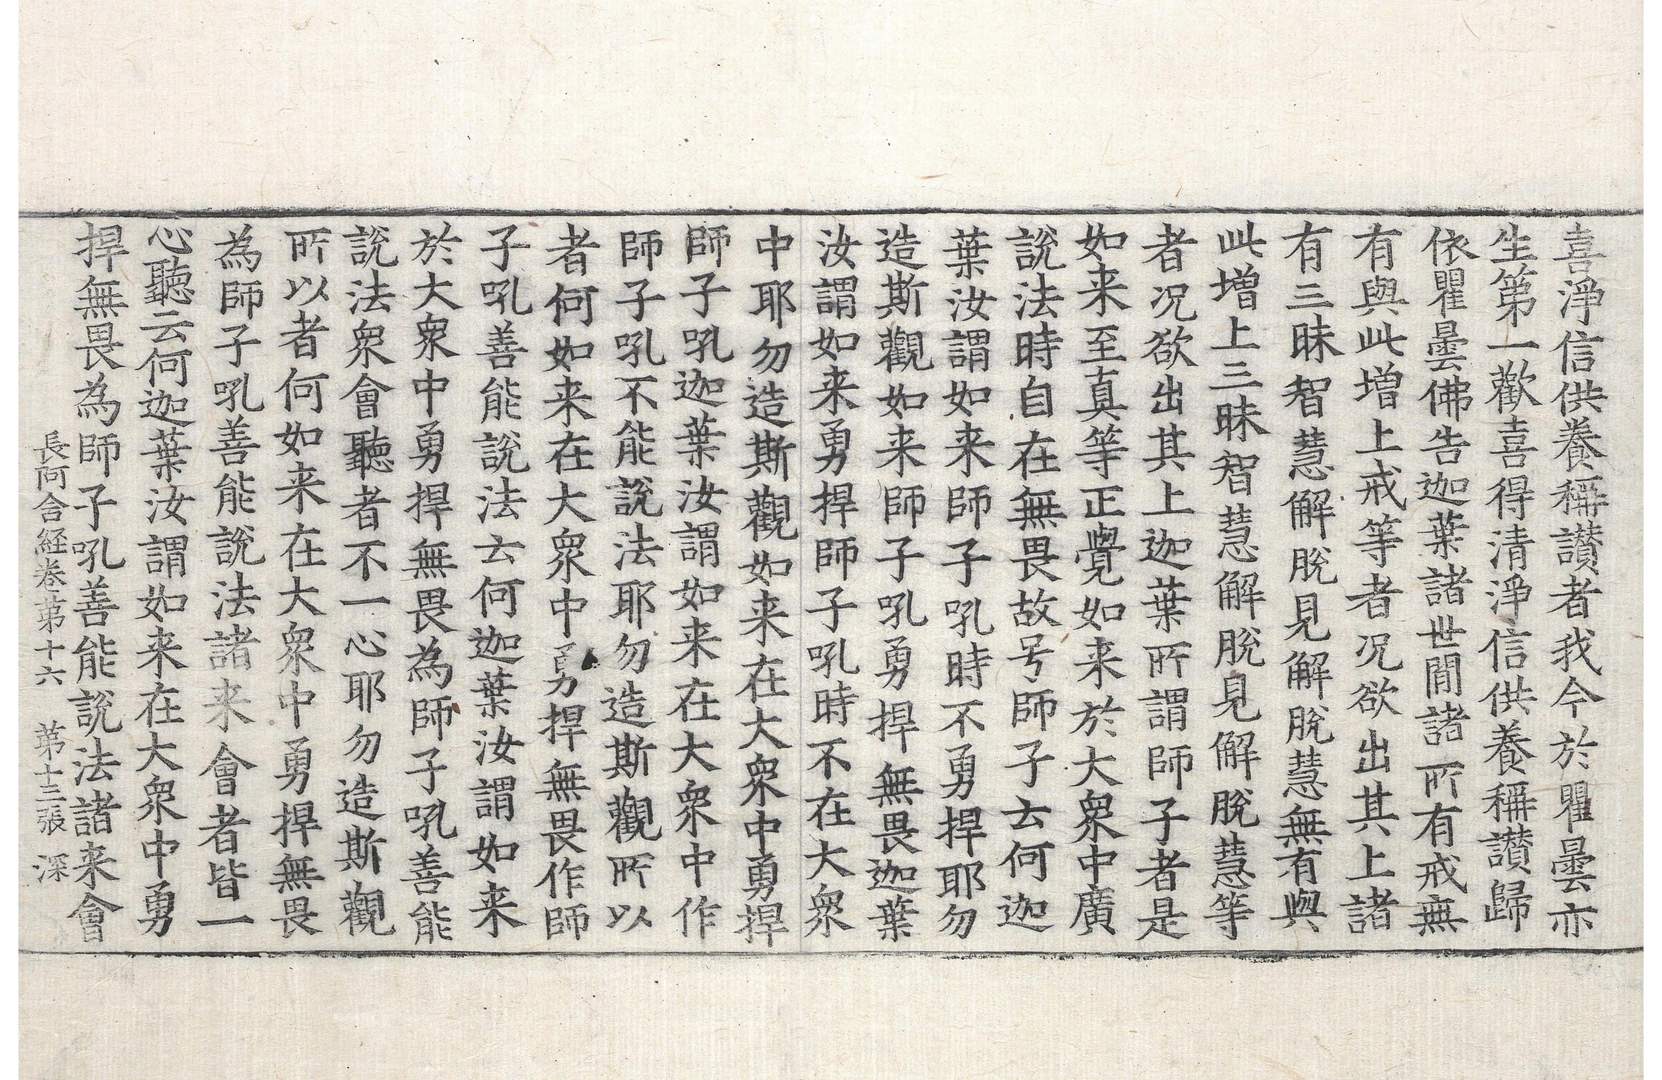 喜淨信供養稱讃者我今於瞿曇亦
生第一歡喜得清淨信供養稱讃歸
依瞿曇佛告迦葉諸世間諸所有戒無
有與此增上戒等者况欲出其上諸
有三昧智慧解脫見解脫慧無有與
此增上三昧智慧解脫見解脫慧等
者况欲出其上迦葉所謂師子者是
如来至真等正覺如来於大衆中廣
說法時自在無畏故号師子云何迦
葉汝謂如来師子吼時不勇捍耶勿
造斯觀如来師子吼勇捍無畏迦葉
汝謂如来勇捍師子吼時不在大衆
中耶勿造斯觀如来在大衆中勇捍
師子吼迦葉汝謂如来在大衆中作
師子吼不能說法耶勿造斯觀所以
者何如来在大衆中勇捍無畏作師
子吼善能說法云何迦葉汝謂如来
於大衆中勇捍無畏為師子吼善能
說法衆會聽者不一心耶勿造斯觀
所以者何如来在大衆中勇捍無畏
為師子吼善能說法諸来會者皆一
心聽云何迦葉汝謂如来在大衆中勇
捍無畏為師子吼善能說法諸来會
長阿含経卷第十六　第十三張　深